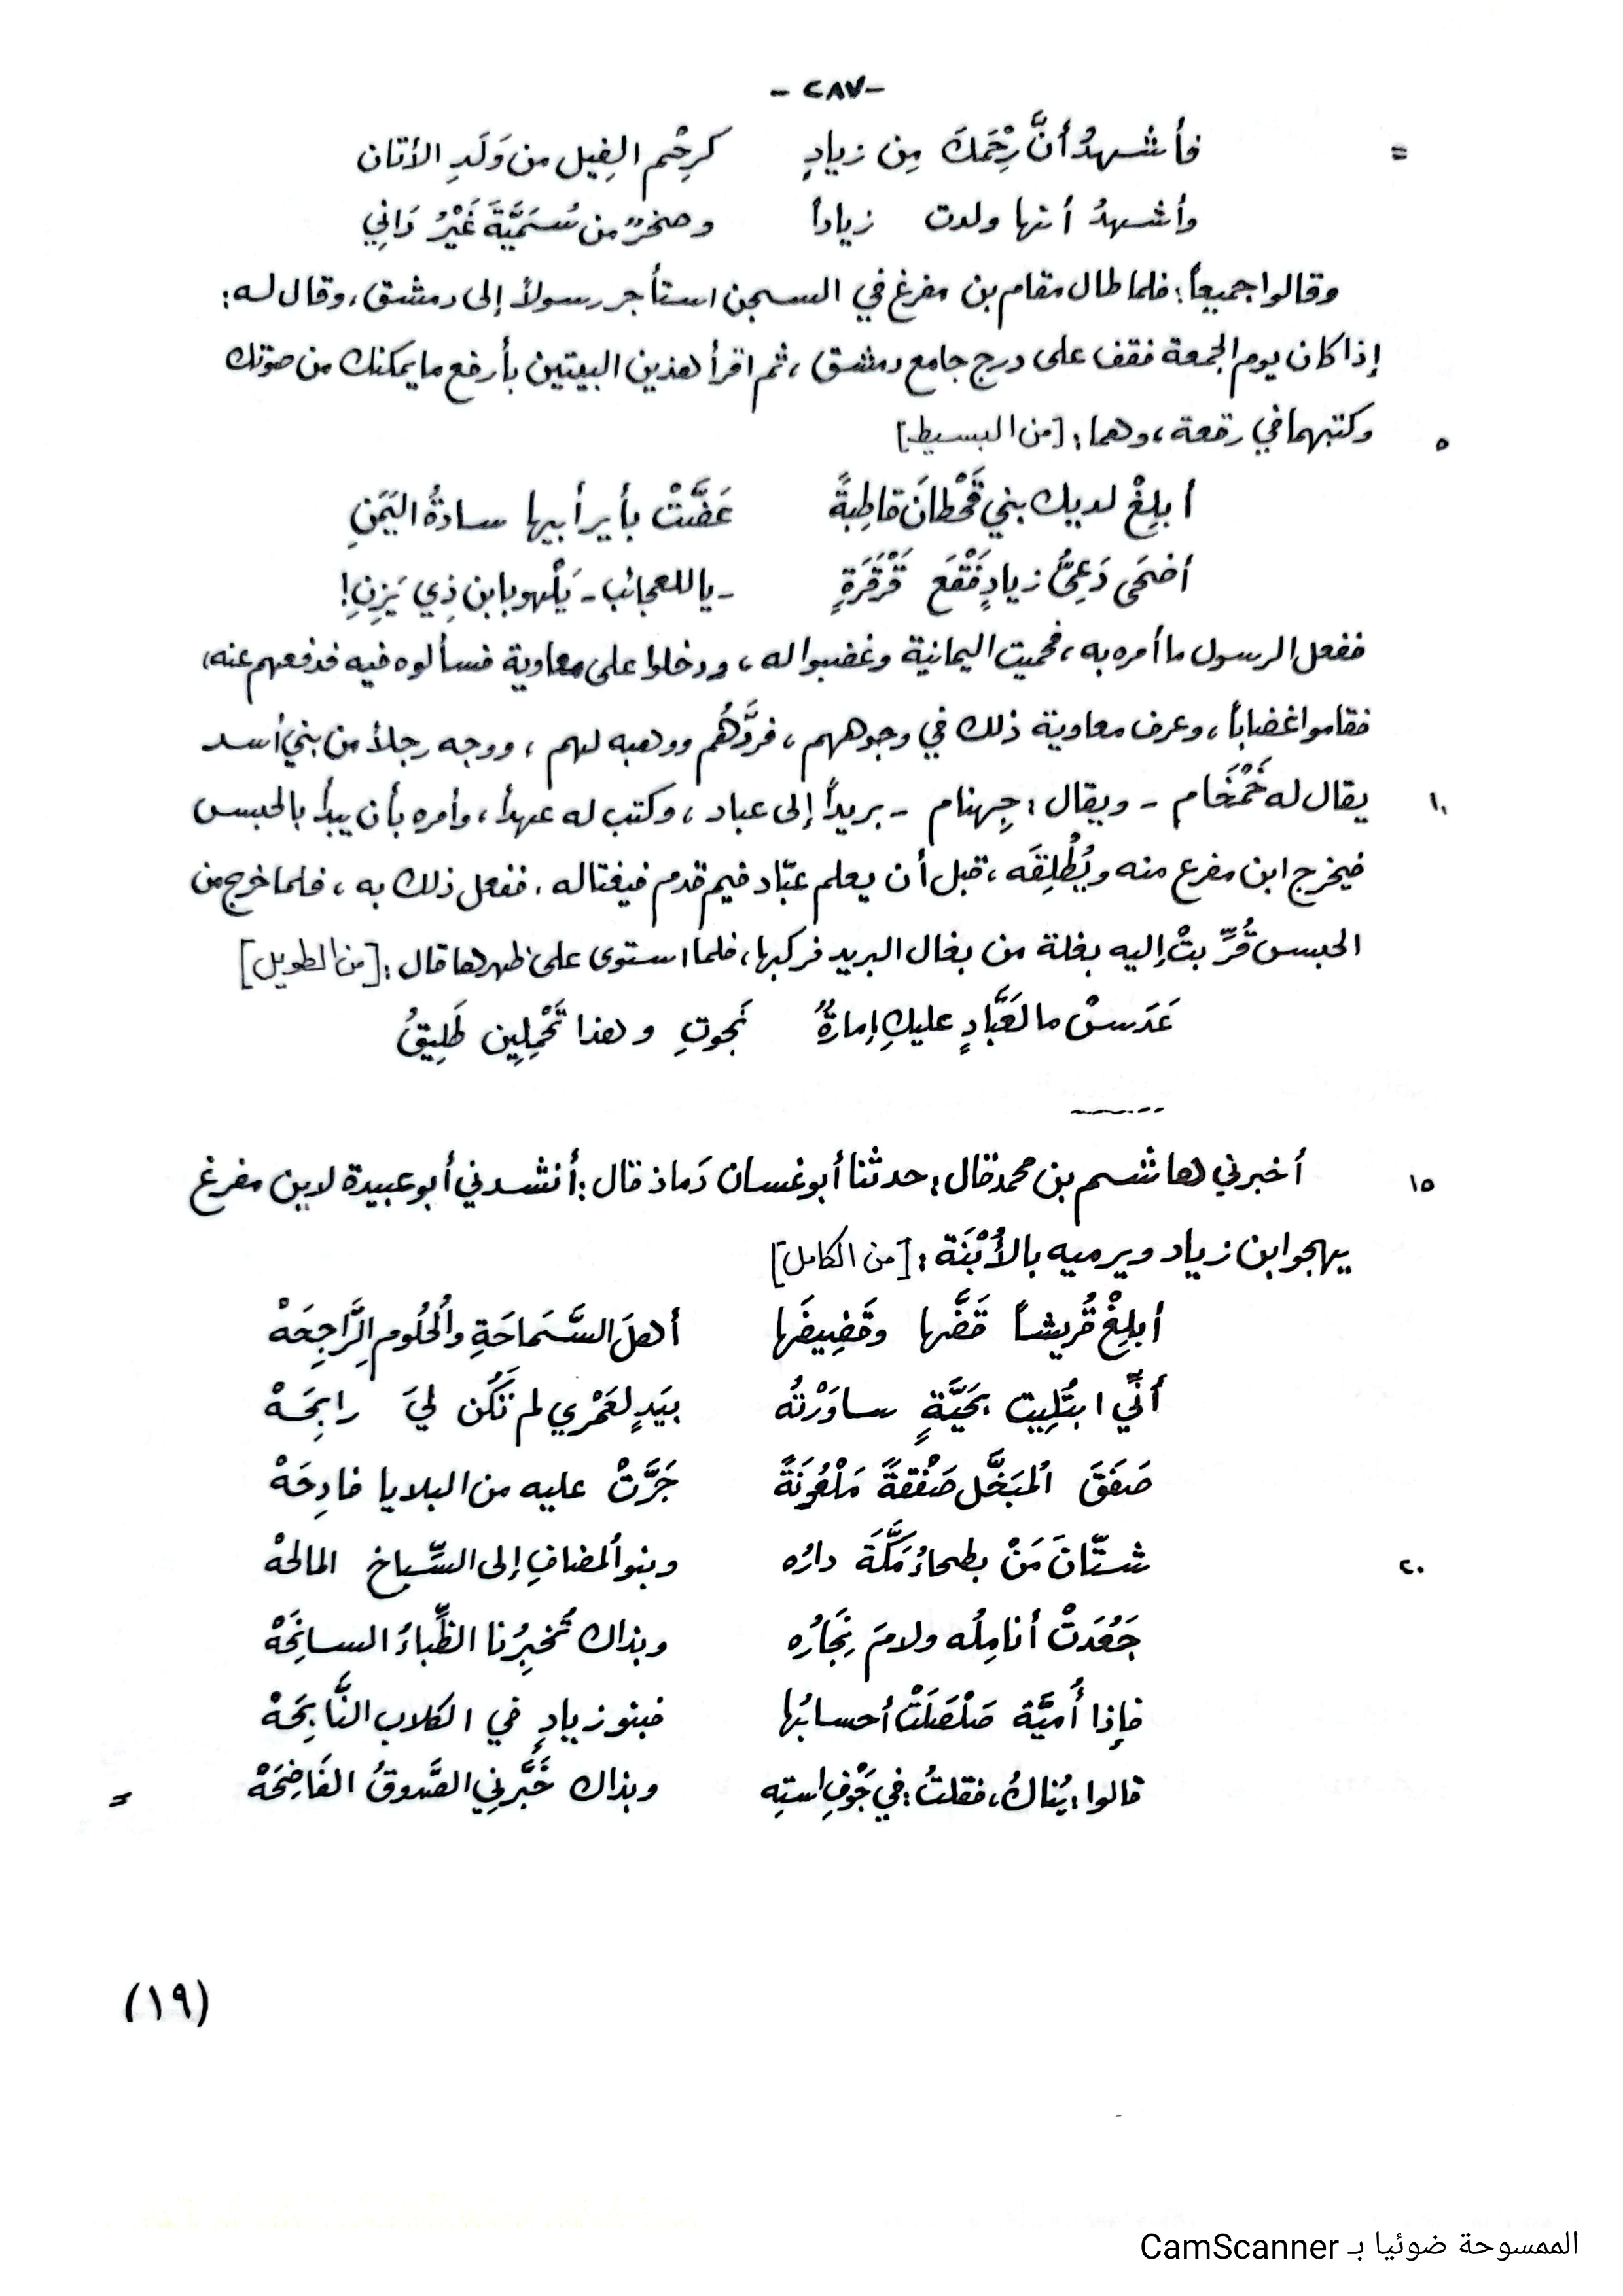 -٢٨٧-
= فأشهدُ أنَّ رِحْمَكَ مِن زيادٍ كرِحْمِ الفِيل من وَلَدِ الأتان
وأشهدُ أنها ولدت زياداً وصخرٌ من سُمَيَّةَ غَيْرُ دَانِي
وقالوا جميعاً: فلما طال مقام بن مفرغ في السجن استأجر رسولاً إلى دمشق، وقال له:
إذا كان يوم الجمعة فقف على درج جامع دمشق، ثم اقرأ هذين البيتين بأرفع ما يمكنك من صوتك
٥ وكتبهما في رقعة، وهما: [من البسيط]
أبلِغْ لديك بني قَحْطانَ قاطِبةً عَضَّتْ بأير أبيها سادةُ اليَمَنِ
أضحَى دَعِيُّ زيادٍ فَقْعَ قَرْقَرَةٍ - يا للعجائب - يَلْهو بابن ذِي يَزِنِ!
ففعل الرسول ما أمره به، فحميت اليمانية وغضبوا له، ودخلوا على معاوية فسألوه فيه فدفعهم عنه،
فقاموا غضاباً، وعرف معاوية ذلك في وجوههم، فردَّهُم ووهبه لهم، ووجه رجلاً من بني أسد
١٠ يقال له خَمْخَام - ويقال: جِهنام - بريداً إلى عباد، وكتب له عهداً، وأمره بأن يبدأ بالحبس
فيخرج ابن مفرع منه ويُطْلِقَه، قبل أن يعلم عبّاد فيم قدم فيغتاله. ففعل ذلك به، فلما خرج من
الحبس قُرِّبتْ إليه بغلة من بغال البريد فركبها، فلما استوى على ظهرها قال: [من الطويل]
عَدَسْ ما لعَبَّادٍ عليكِ إمارةٌ نجوتِ وهذا تَحْمِلِين طَلِيقُ
١٥ أخبرني هاشم بن محمد قال: حدثنا أبو غسان دَماذ قال: أنشدني أبو عبيدة لابن مفرغ
يهجو ابن زياد ويرميه بالأُبْنَة: [من الكامل]
أبلِغْ قُريشاً قَضَّها وقَضِيضَها أهلَ السَّمَاحَةِ والحُلُومِ الرَّاجِحَهْ
أنِّي ابتُلِيت بحَيَّةٍ ساوَرْتُه بيَدٍ لعَمْري لم تَكُن ليَ رابِحَهْ
صَفَقَ المُبَخَّل صَفْقةً مَلْعُونَةً جَرَّتْ عليه من البلايا فادِحَهْ
٢٠ شتّانَ مَنْ بطحاءُ مَكَّةَ دارُه وبنو المضافِ إلى السِّباخ المالحهْ
جَعُدَتْ أنامِلُه ولامَ نِجَارُه وبذاك تُخبِرُنا الظِّباءُ السانِحَهْ
فإذا أُميَّة صَلْصَلَتْ أحسابُها فبنو زيادٍ في الكلاب النَّابِحَهْ
قالوا: يُناكُ، فقلتُ: في جَوْفِ استِه وبذاك خَبَّرنِي الصَّدوقُ الفَاضِحَهْ =
(١٩)
الممسوحة ضوئيا بـ CamScanner